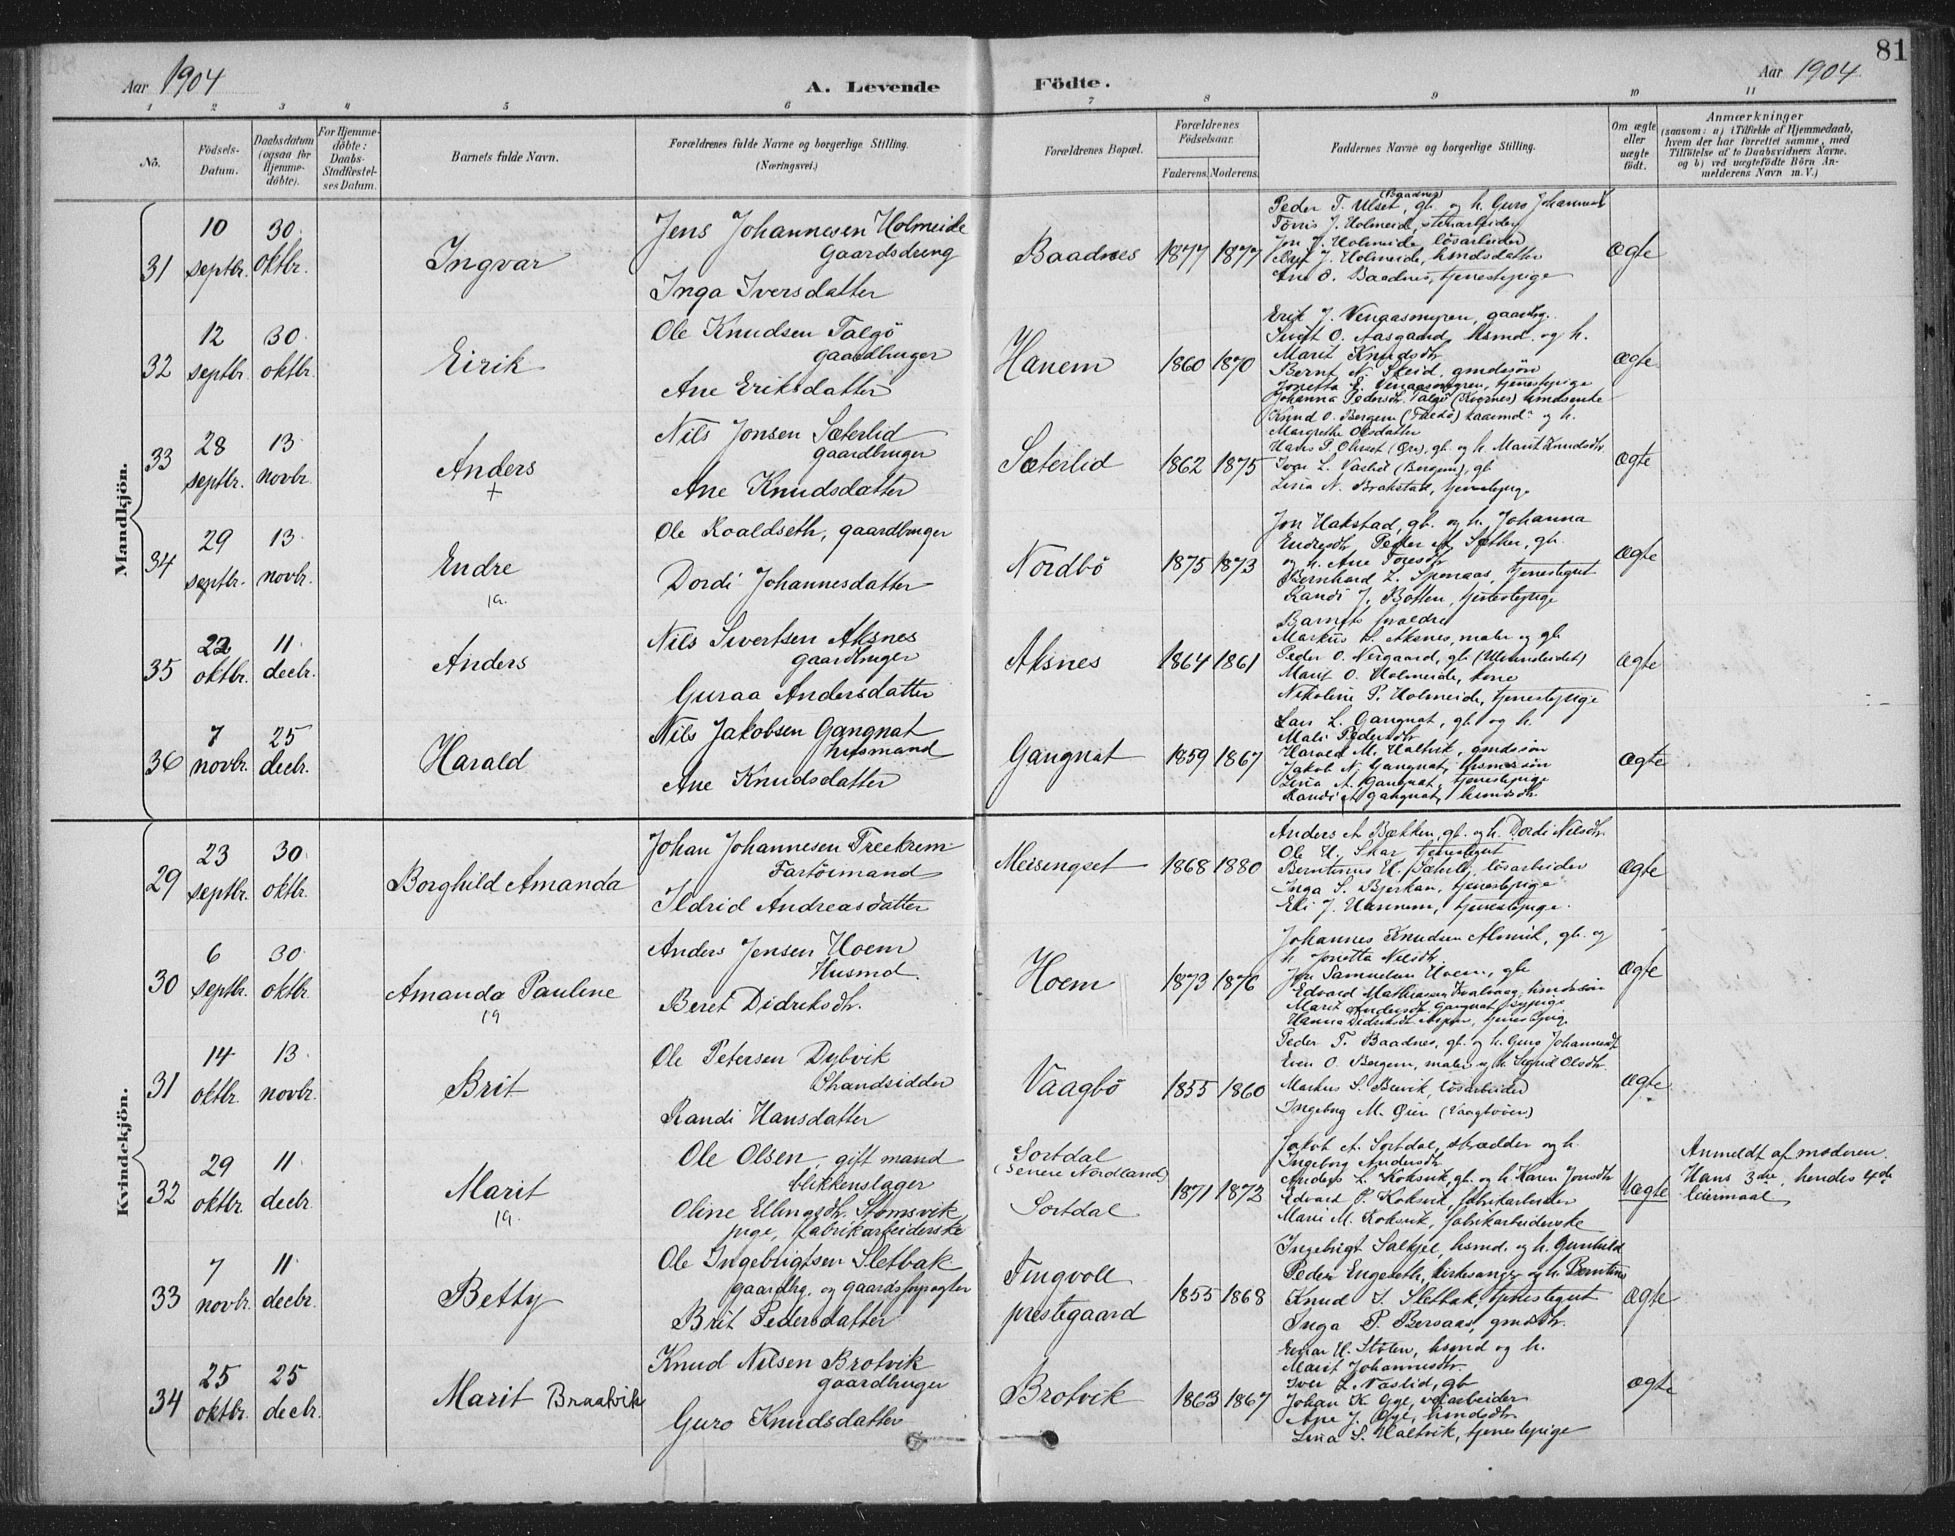 81
Aar 1904
A. Levende Födte.
Aar 1904.
1 2 3 4 5 6 7 8 9 10 11
No.
Födsels-
Datum.
Daabsdatum
(ogsaa for
Hjemme-
döbte).
For Hjemme-
döbte:
Daabs-
Stadfestel-
ses Datum.
Barnets fulde Navn.
Forældrenes fulde Navne og borgerlige Stilling.
(Næringsvei.)
Forældrenes Bopæl.
Forældrenes
Födselsaar.
Faderens. Moderens.
Faddernes Navne og borgerlige Stilling.
Om ægte
eller
uægte
födt.
Anmærkninger
(saasom: a) i Tilfælde af Hjemmedaab,
hvem der har forrettet samme, med
Tilföielse af to Daabsvidners Navne.
og b) ved uægtefödte Börn An-
melderens Navn m. V.)
Mandkjön.
31
10
septbr.
30
oktbr.
Ingvar
Jens Johannesen Holmeide
Gaardsdreng
Inga Iversdatter
Baadnes
1877 1877
(Baadnes)
Peder T. Ulset, gb. og h. Guro Johannesd
Jon J. Holmeide, lösarbeider
J. Holmeide, husmdsdatter
Ane O. Baadnes, tjenestepige
Ægte
32
12
septbr.
30
oktbr.
Eirik
Ole Knudsen Talgö
gaardbruger
Ane Eriksdatter
Hanem
1860 1870
Erik J. Venaasmyren, gaardbg.
Sivert O. Aasgaard, husmd. og h.
Marit Knudsdtr.
Bernt N. Skeid, gmdssön
Jonetta E. Venaasmyren, tjenestepige
Johanna Pedersdtr. Talgö (Kvernes)
Ægte
33
28
septbr.
13
novbr.
Anders
+
Nils Jonsen Sæterlid
gaardbruger
Ane Knudsdatter
Sæterlid
1862 1875
Knud O. Bergem og h.
Margrethe Olsdatter
Hans P. (Öre), gb. og h. Marit Knudsdtr.
Ivar L. Vaslid (Bergem), gb
Lina N. Brakstad, tjenestepige
Ægte
34
29
septbr.
13
novbr.
Endre
Ole Roaldseth, gaardbruger
Dordi Johannesdatter
Nordbö
1875 1873
Jon Hakstad, gb. og h. Johanna
Endresdtr. Peder A. Sæther, gb.
og h. Ane Toresdtr
Bernhard L. Spenaas, tjenestegut
Randi J. Bötten, tjenestepige
Ægte
35
22
oktbr.
11
decbr.
Anders
Nils Sivertsen Aksnes
gaardbruger
Guraa Andersdatter
Aksnes
1864 1861
Barnets forældre
Markus S. Aksnes, maler og gb
Peder O. Nergaard, gb. (Ulvundeidet)
Marit O. Holmeide, kone
Nikoline P. Holmeide, tjenestepige
Ægte
36
7
novbr.
25
decbr.
Harald
Nils Jakobsen Gangnat
husmand
Ane Knudsdatter
Gangnat
1859 1867
Lars L. Gangnat, gb. og h.
Mali Pedersdtr
Harald M. Haltvik, gmdssön
Jakob N. Gangnat, husmdssön
Lina A. Gangnat, tjenestepige
Randi A. Gangnat, husmdsdtr.
Ægte
Kvindekjön.
29
23
septbr.
30
oktbr.
Borghild Amanda
Johan Johannesen Treekrem
Fartöismand
Ildrid Andreasdatter
Meisingset
1868 1880
Anders A. Bækken, gb. og h. Dordi Nilsdtr.
Ole H. Skar, tjenestegut
Berntinus H. Sæterlid, lösarbeider
Inga S. Bjerkan, tjenestepige
Eli J. Hannem, tjenestepige.
Ægte
30
6
septbr.
30
oktbr.
Amanda Pauline
Anders Jensen Hoem
Husmd.
Beret Didriksdtr.
Hoem
1873 1876
Johannes Knudsen Alsvik, gb. og
h. Jonetta Nilsdtr.
Jon Samuelsen Hoem, gb
Edvard Mathiasen Kvalvaag, husmdssön
Marit Andersdtr. Gangnat, sypige
Hanna Didriksdtr. Aspen, tjenestepig.
Ægte
31
14
oktbr.
13
novbr.
Brit
Ole Petersen Dybvik
Strandsidder
Randi Hansdatter
Vaagbö
1855 1860
Peder T. Baadnes, gb. og h. Guro Johannesdt
Even O. Bergem, maler og h. Sigrid Olsdtr.
Markus S. Bervik, lösarbeider
Ingeborg M. Öien (Vaagbööien)
Ægte
32
29
oktbr.
11
decbr.
Marit
Ole Olsen, gift mand
blikkenslager
Oline Ellingsdtr. Stomsvik
pige, fabrikarbeiderske
Sortdal
(senere Nordland)
Sortdal
1871 1872
Jakob A. Sortdal, skrædder og h.
Ingeborg Andersdtr.
Anders L. Koksvik, gb. og h. Karen Jonsdtr
Edvard P. Koksvik, fabrikarbeider
Marie M. Koksvik, fabrikarbeiderske
Uægte
Anmeldt af moderen.
Hans 3die, hendes 4de
leiermaal
33
7
novbr.
11
decbr.
Betty
Ole Ingebrigtsen Sletbak
gaardbrg. og gaardsforpagter
Brit Pedersdatter
Tingvoll
prestegaard
1855 1868
Ingebrigt Salkjel, husmd. og h. Gunhild
Peder Engeseth, kirkesanger og h. Berntine
Knud I. Sletbak, tjenestegut
Inga P. Bersaas, gmdsdtr.
Ægte
34
25
oktbr.
25
decbr.
Marit Braatvik
Knud Nilsen Brotvik
gaardbruger
Guro Knudsdatter
Brotvik
1863 1867
Einar H. Stölen, husmd og h.
Marit Johannesdtr.
Iver L. Vaslid, gb
Johan K. Gyl, veiarbeider
Ane J. Gyl, husmdsdtr.
Lina S. Haltvik, tjenestepige
Ægte